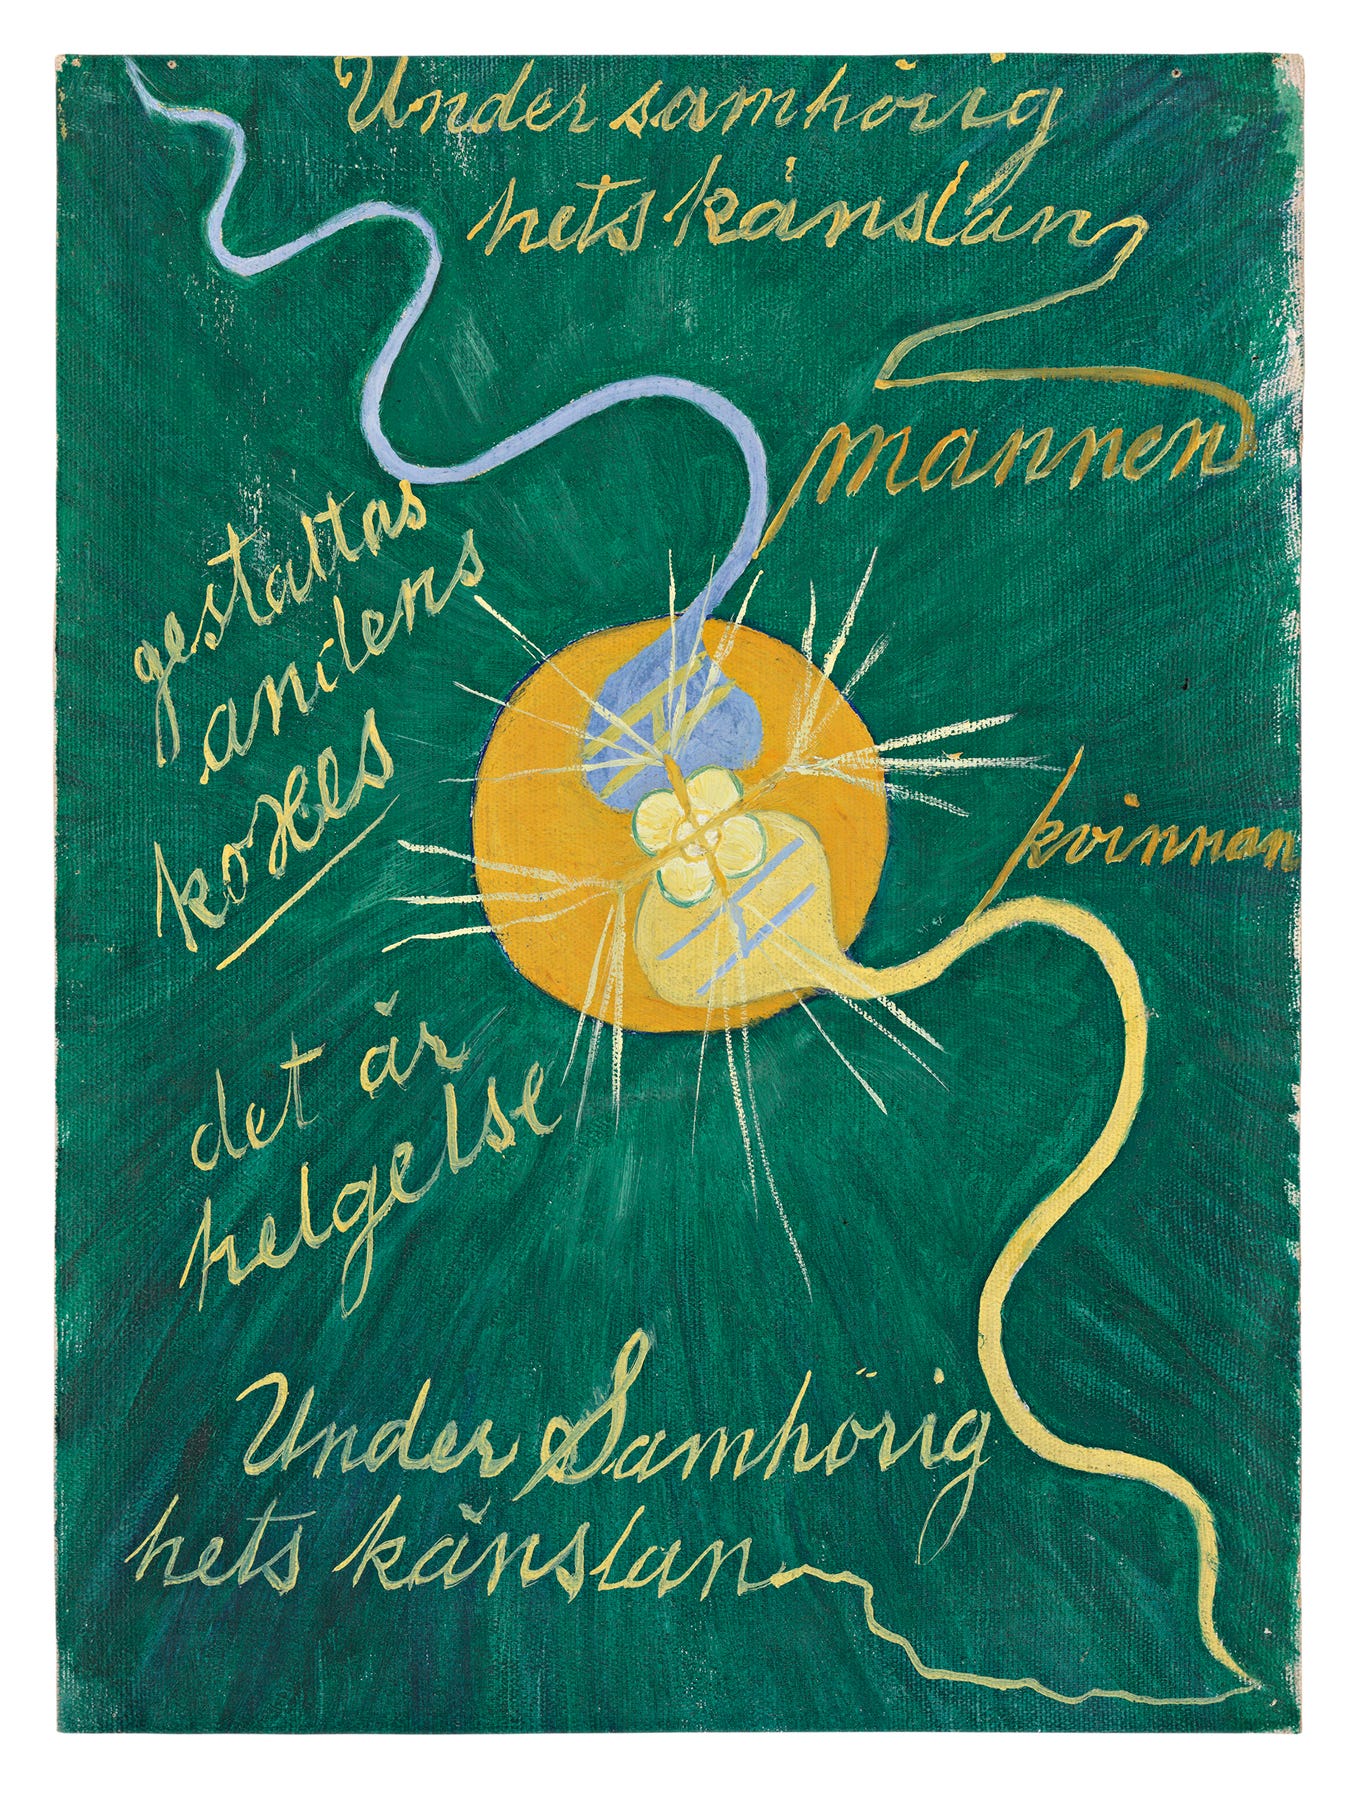 Under samhörig
hets känslan
mannen
gestaltas
andens
korses
kvinnan
det är
helgelse
Under Samhörig
hets känslan